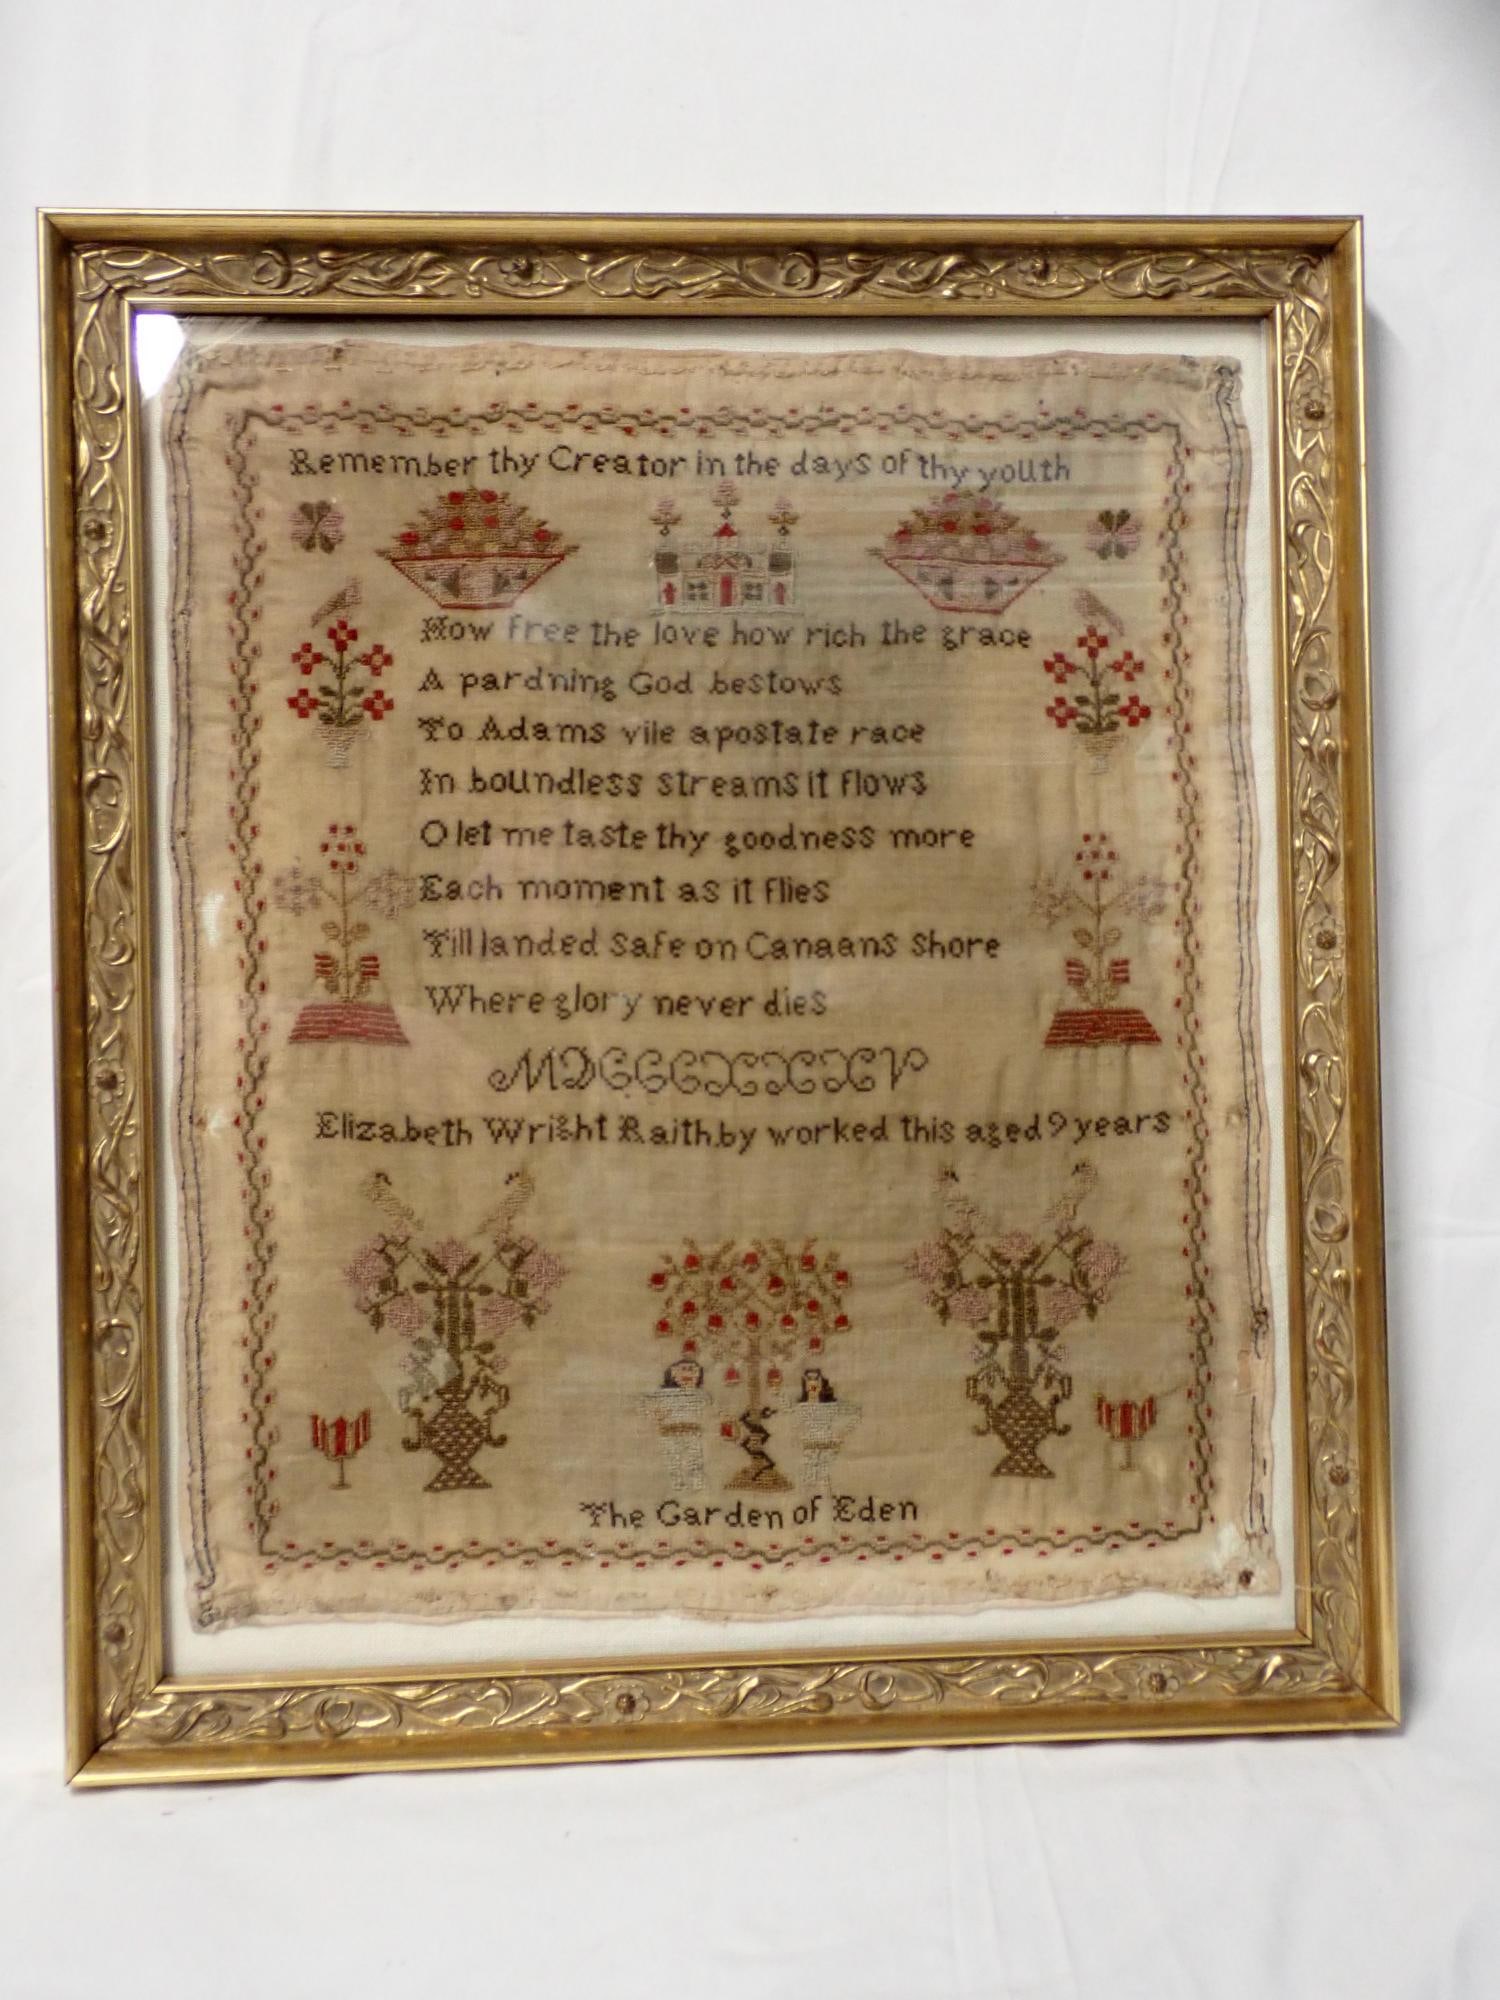 Remember thy Creator in the days of thy youth
How free the love how rich the grace
A pardning God bestows
To Adams vile apostate race
In boundless streams it flows
O let me taste thy goodness more
Each moment as it flies
Till landed safe on Canaans shore
Where glory never dies
MDCCCXXXV
Elizabeth Wright Raithby worked this aged 9 years
The Garden of Eden